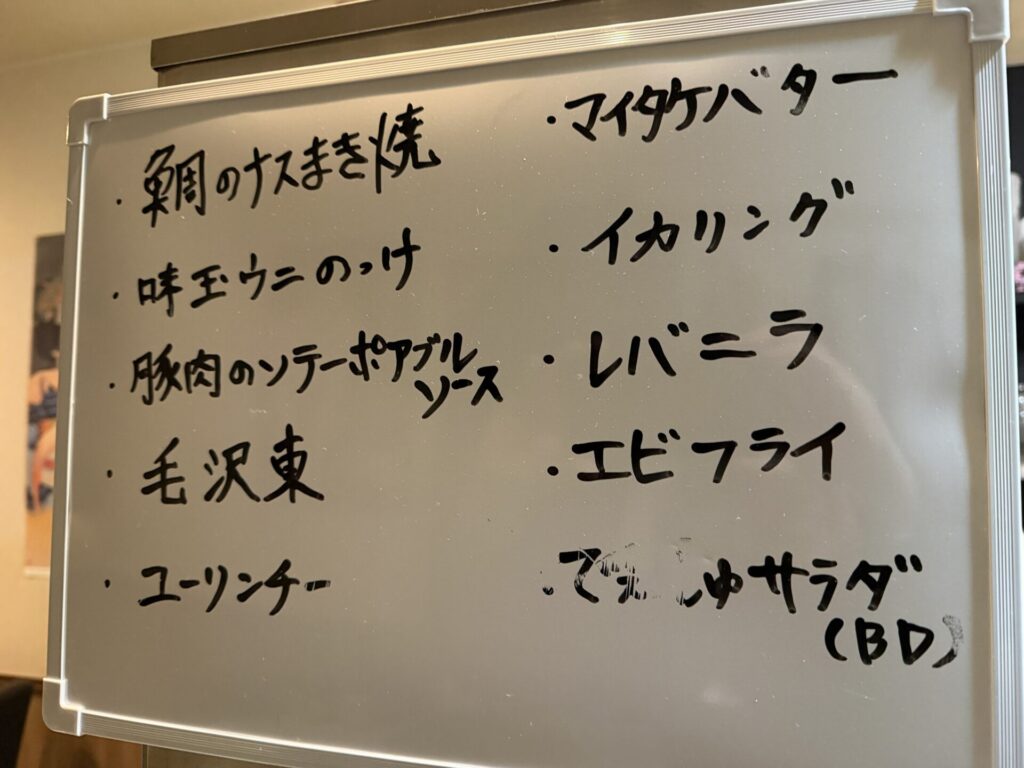 ・鯛のナスまき焼
・味玉ウニのっけ
・豚肉のソテーポアブル
ソース
・毛沢東
・ユーリンチー
・マイタケバター
・イカリング
・レバニラ
・エビフライ
サラダ
(BD)